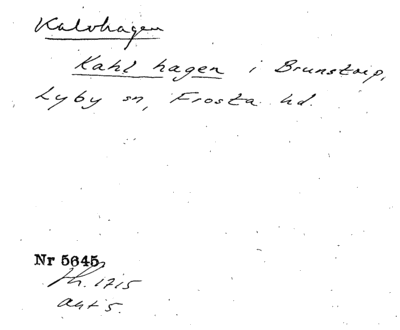 Kalvhagen
Kahl hagen i Brunstorp,
Lyby sn, Frosta hd.
Nr 5645
Jh. 1715
akt 5.